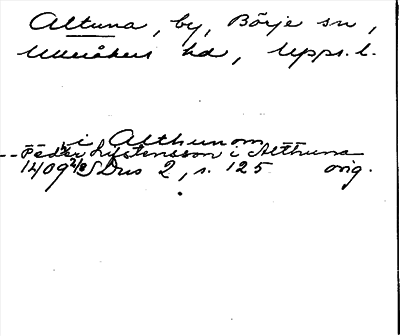 Altuna, by, Börje sn,
Ulleråkers hd, Upps. l.
i Althunom
-- Peder Lystensson i Althuna
1409 2/8 SDns 2, s. 125 orig.